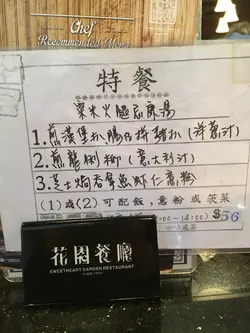 Chef
Recommended Menu
特餐
粟米火腿忌廉湯
1. 煎漢堡扒腸仔拼豬扒(洋蔥汁)
2. 煎龍脷柳(意大利汁)
3. 芝士焗石斑魚蝦仁意粉
(1)或(2)可配飯,意粉或茨菜
14:00) $56
花園餐廳
SWEETHEART GARDEN RESTAURANT